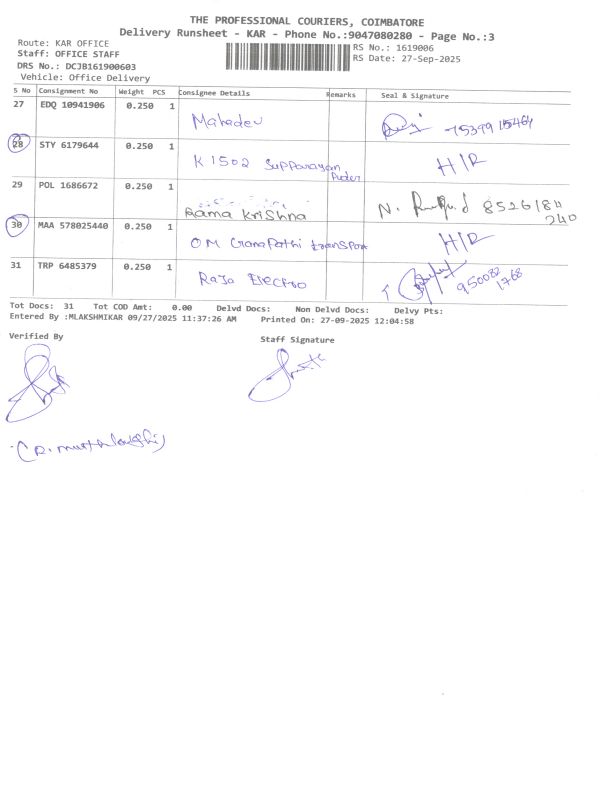 THE PROFESSIONAL COURIERS, COIMBATORE
Delivery Runsheet - KAR - Phone No.:9047080280 - Page No.:3
Route: KAR OFFICE
Staff: OFFICE STAFF
DRS No.: DCJB161900603
Vehicle: Office Delivery
RS No.: 1619006
RS Date: 27-Sep-2025
S No Consignment No Weight PCS Consignee Details Remarks Seal & Signature
27 EDQ 10941906 0.250 1 Mahadev
28 STY 6179644 0.250 1 K 1502 H/R
29 POL 1686672 0.250 1 Rama Krishna N. 8526184 240
30 MAA 578025440 0.250 1 OM Ganapathi transport H/R
31 TRP 6485379 0.250 1 Raja Electro 950082 1768
Tot Docs: 31 Tot COD Amt: 0.00 Delvd Docs: Non Delvd Docs: Delvy Pts:
Entered By :MLAKSHMIKAR 09/27/2025 11:37:26 AM Printed On: 27-09-2025 12:04:58
Verified By
Staff Signature